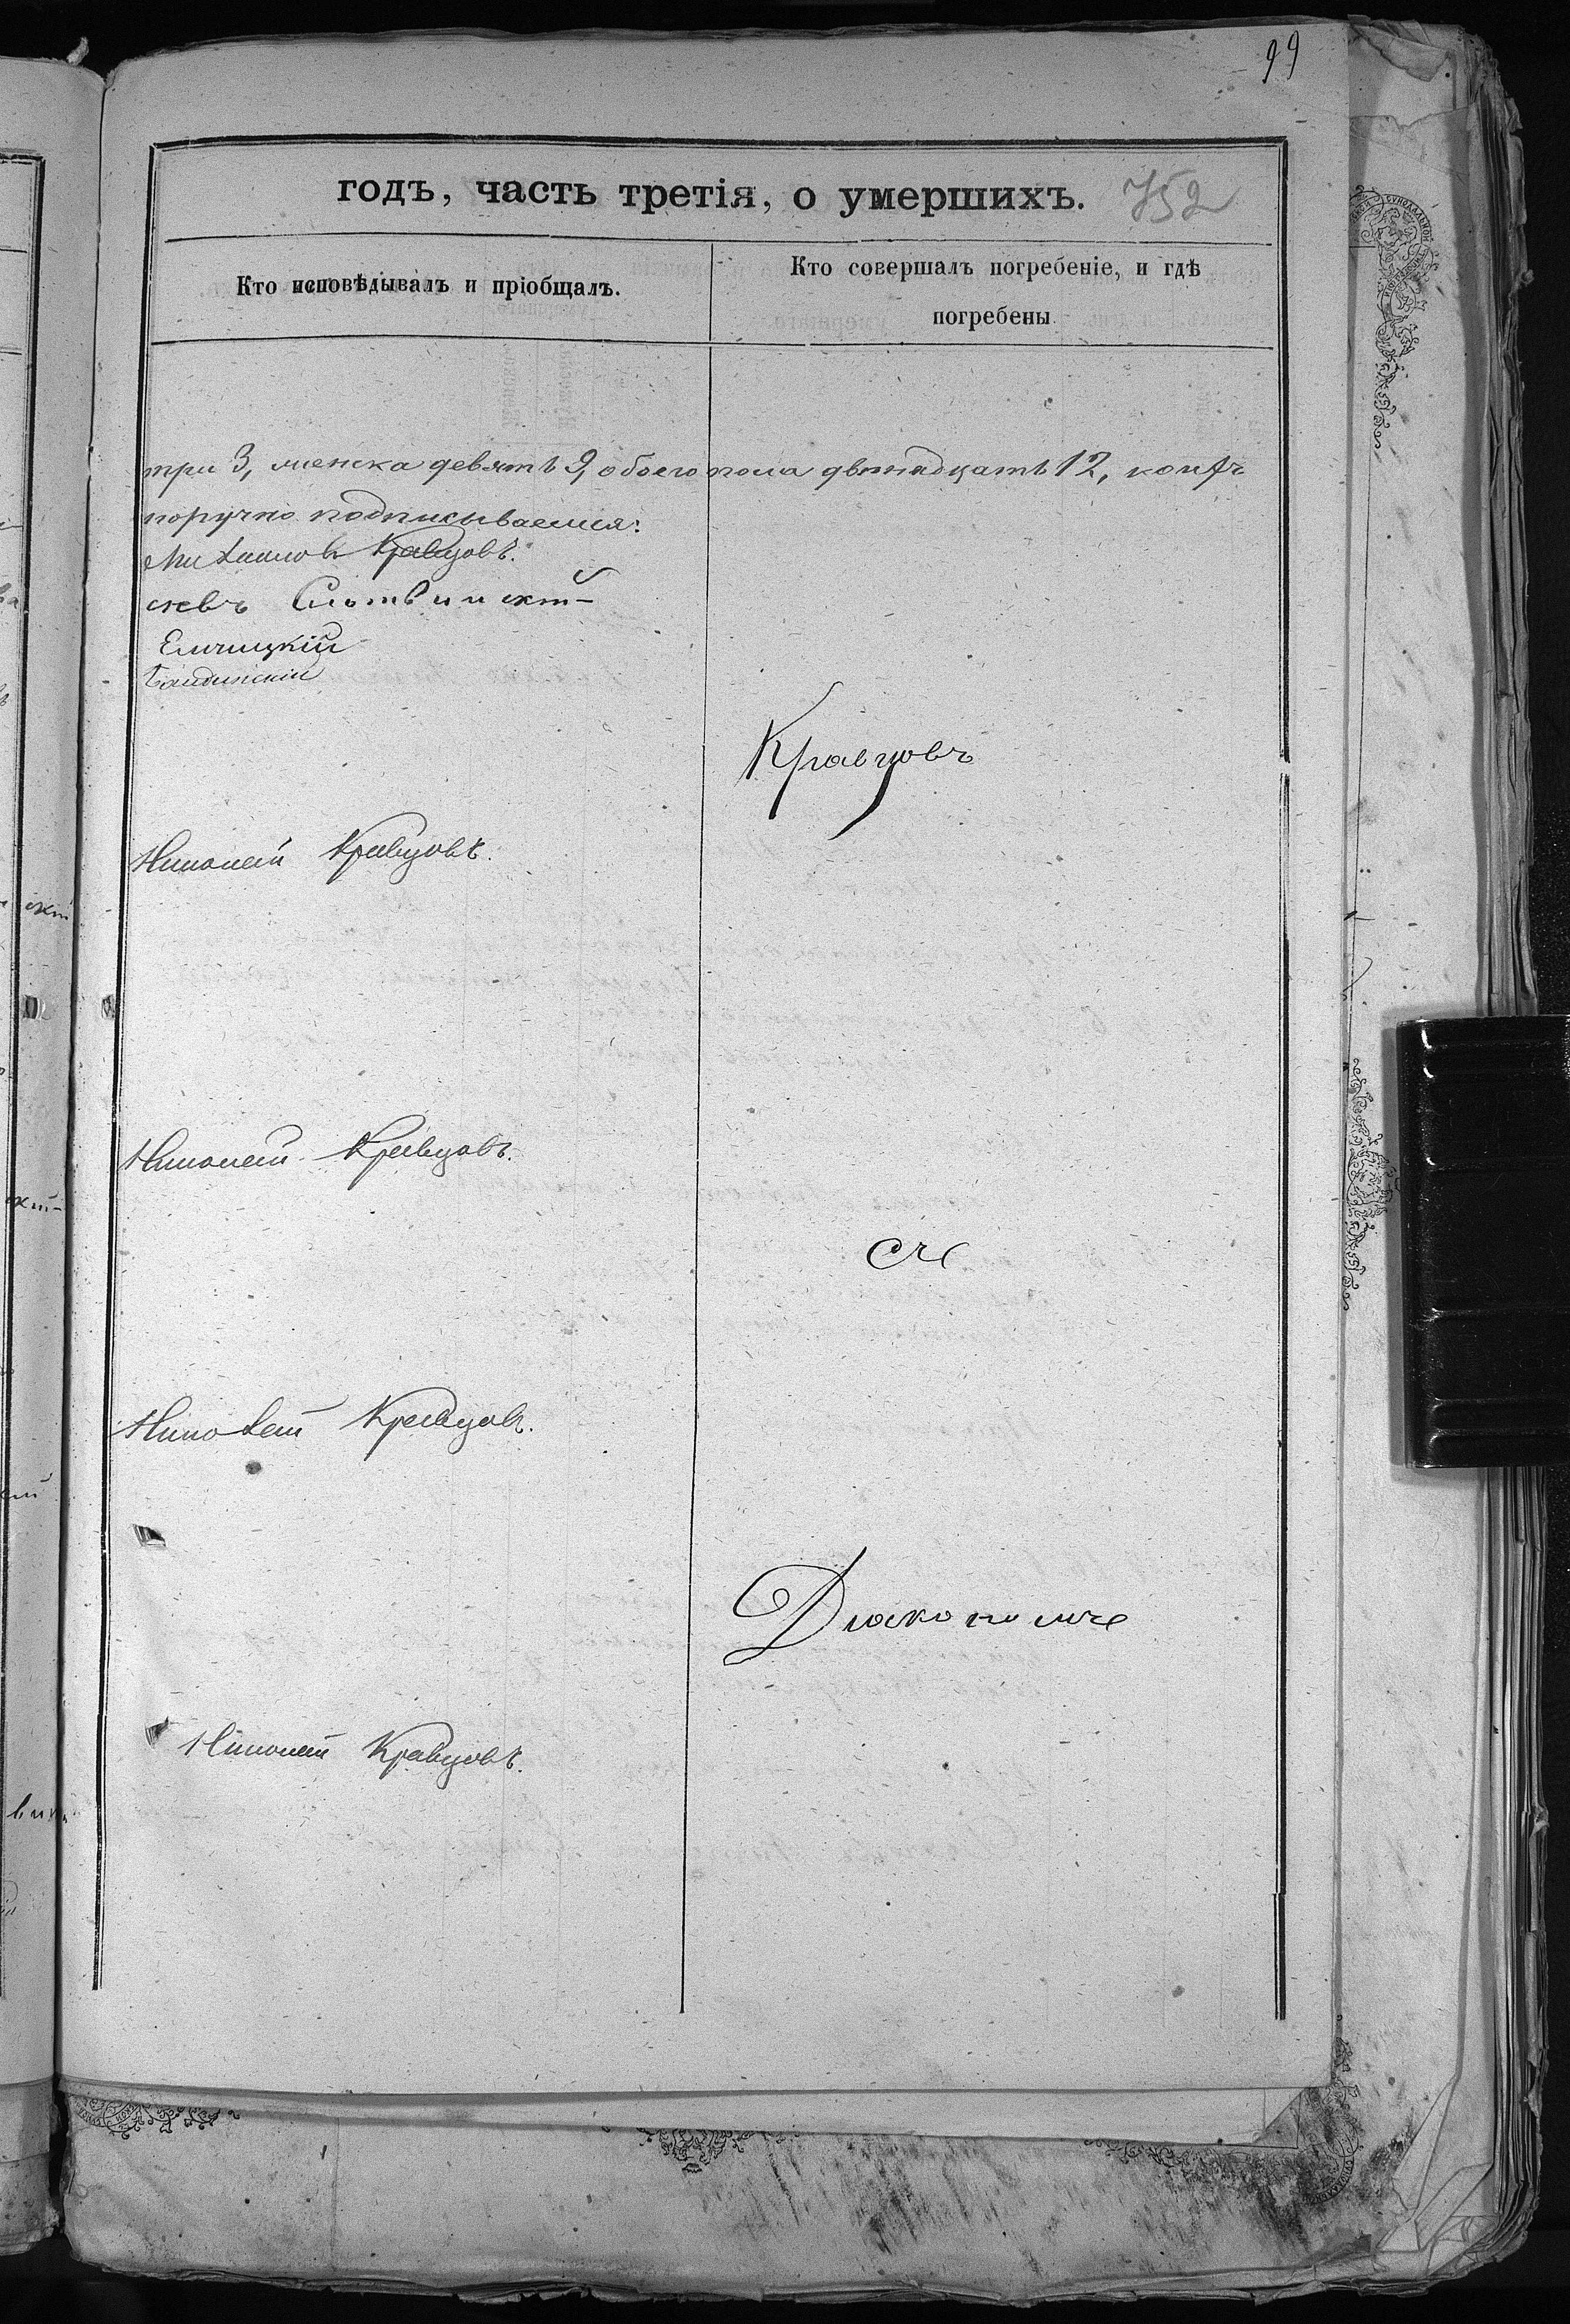 99
годъ, часть третія, о умершихъ. 752
Кто исповѣдывалъ и пріобщалъ.
Кто совершалъ погребеніе, и гдѣ
погребены
три 3, женска девять 9, обоего пола двѣнадцать 12, коихъ
норучно подписываемся:
Михаиловъ Кравцовъ.
Слотвинскій
Елчицкій
Николай Кравцовъ.
Николай Кравцовъ.
Николай Кравцовъ.
Николай Кравцовъ.
Кравцовъ
съ
Діакономъ